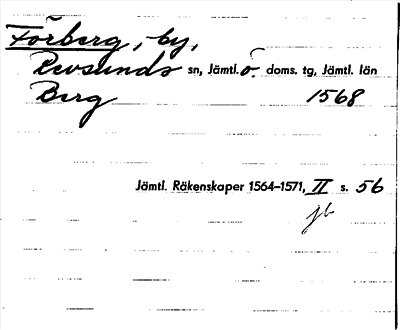 Förberg, by,
Revsunds sn, Jämtl. ö. doms. tg, Jämtl. län
Berg 1568
Jämtl. Räkenskaper 1564–1571, II s. 56